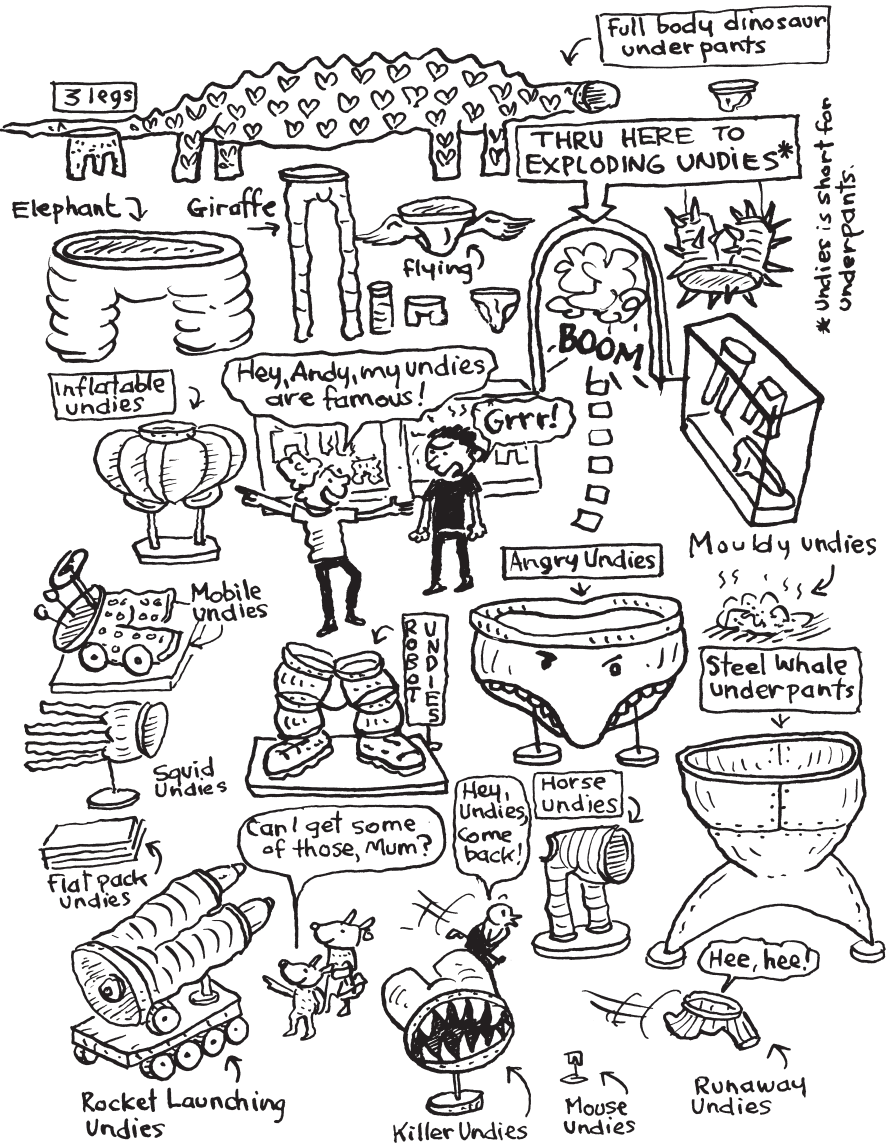 Full body dinosaur
underpants
3 legs
THRU HERE TO
EXPLODING UNDIES*
* Undies is short for
underpants.
Elephant
Giraffe
flying
BOOM
Inflatable
undies
Hey, Andy, my undies
are famous!
Grrr!
Mouldy undies
Angry Undies
Mobile
undies
ROBOT
UNDIES
Steel Whale
underpants
Squid
Undies
Horse
undies
Hey,
Undies,
come
back!
Can I get some
of those, Mum?
Flat pack
undies
Hee, hee!
Rocket Launching
Undies
Killer Undies
Mouse
Undies
Runaway
Undies